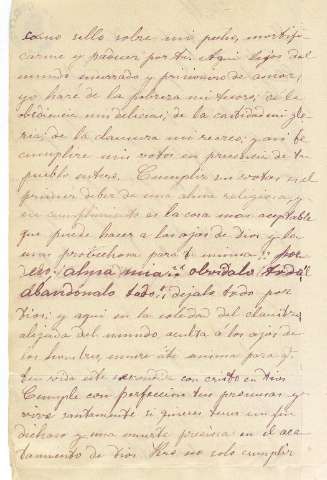 como sello sobre mi pecho, mortifi-
carme y padecer por ti. Aqui lejos del
mundo encerrado y prisionero de amor,
yo haré de la pobreza mi tesoro; de la
obediencia mi delicia; de la castidad mi glo
ria; de la clausura mi recreo; y asi te
cumplire mis votos en presencia de tu
pueblo entero. Cumplir sus votos es el
primer deber de una alma religiosa, y
su cumplimiento es la cosa mas aceptable
que puede hacer a los ojos de Dios y la
mas probechosa para ti misma;
eso, alma mia: olvidalo todo,
abandónalo todo; dejalo todo por
Dios; y aqui en la soledad del claustro
alejada del mundo, oculta a los ojos de
los hombres, muere á ti misma para q.
tu vida este escondida con cristo en Dios
Cumple con perfeccion tus promesas y
vive santamente si quieres tener un fin
dichoso y una muerte preciosa en el aca
tamiento de Dios. Pero no solo cumplir